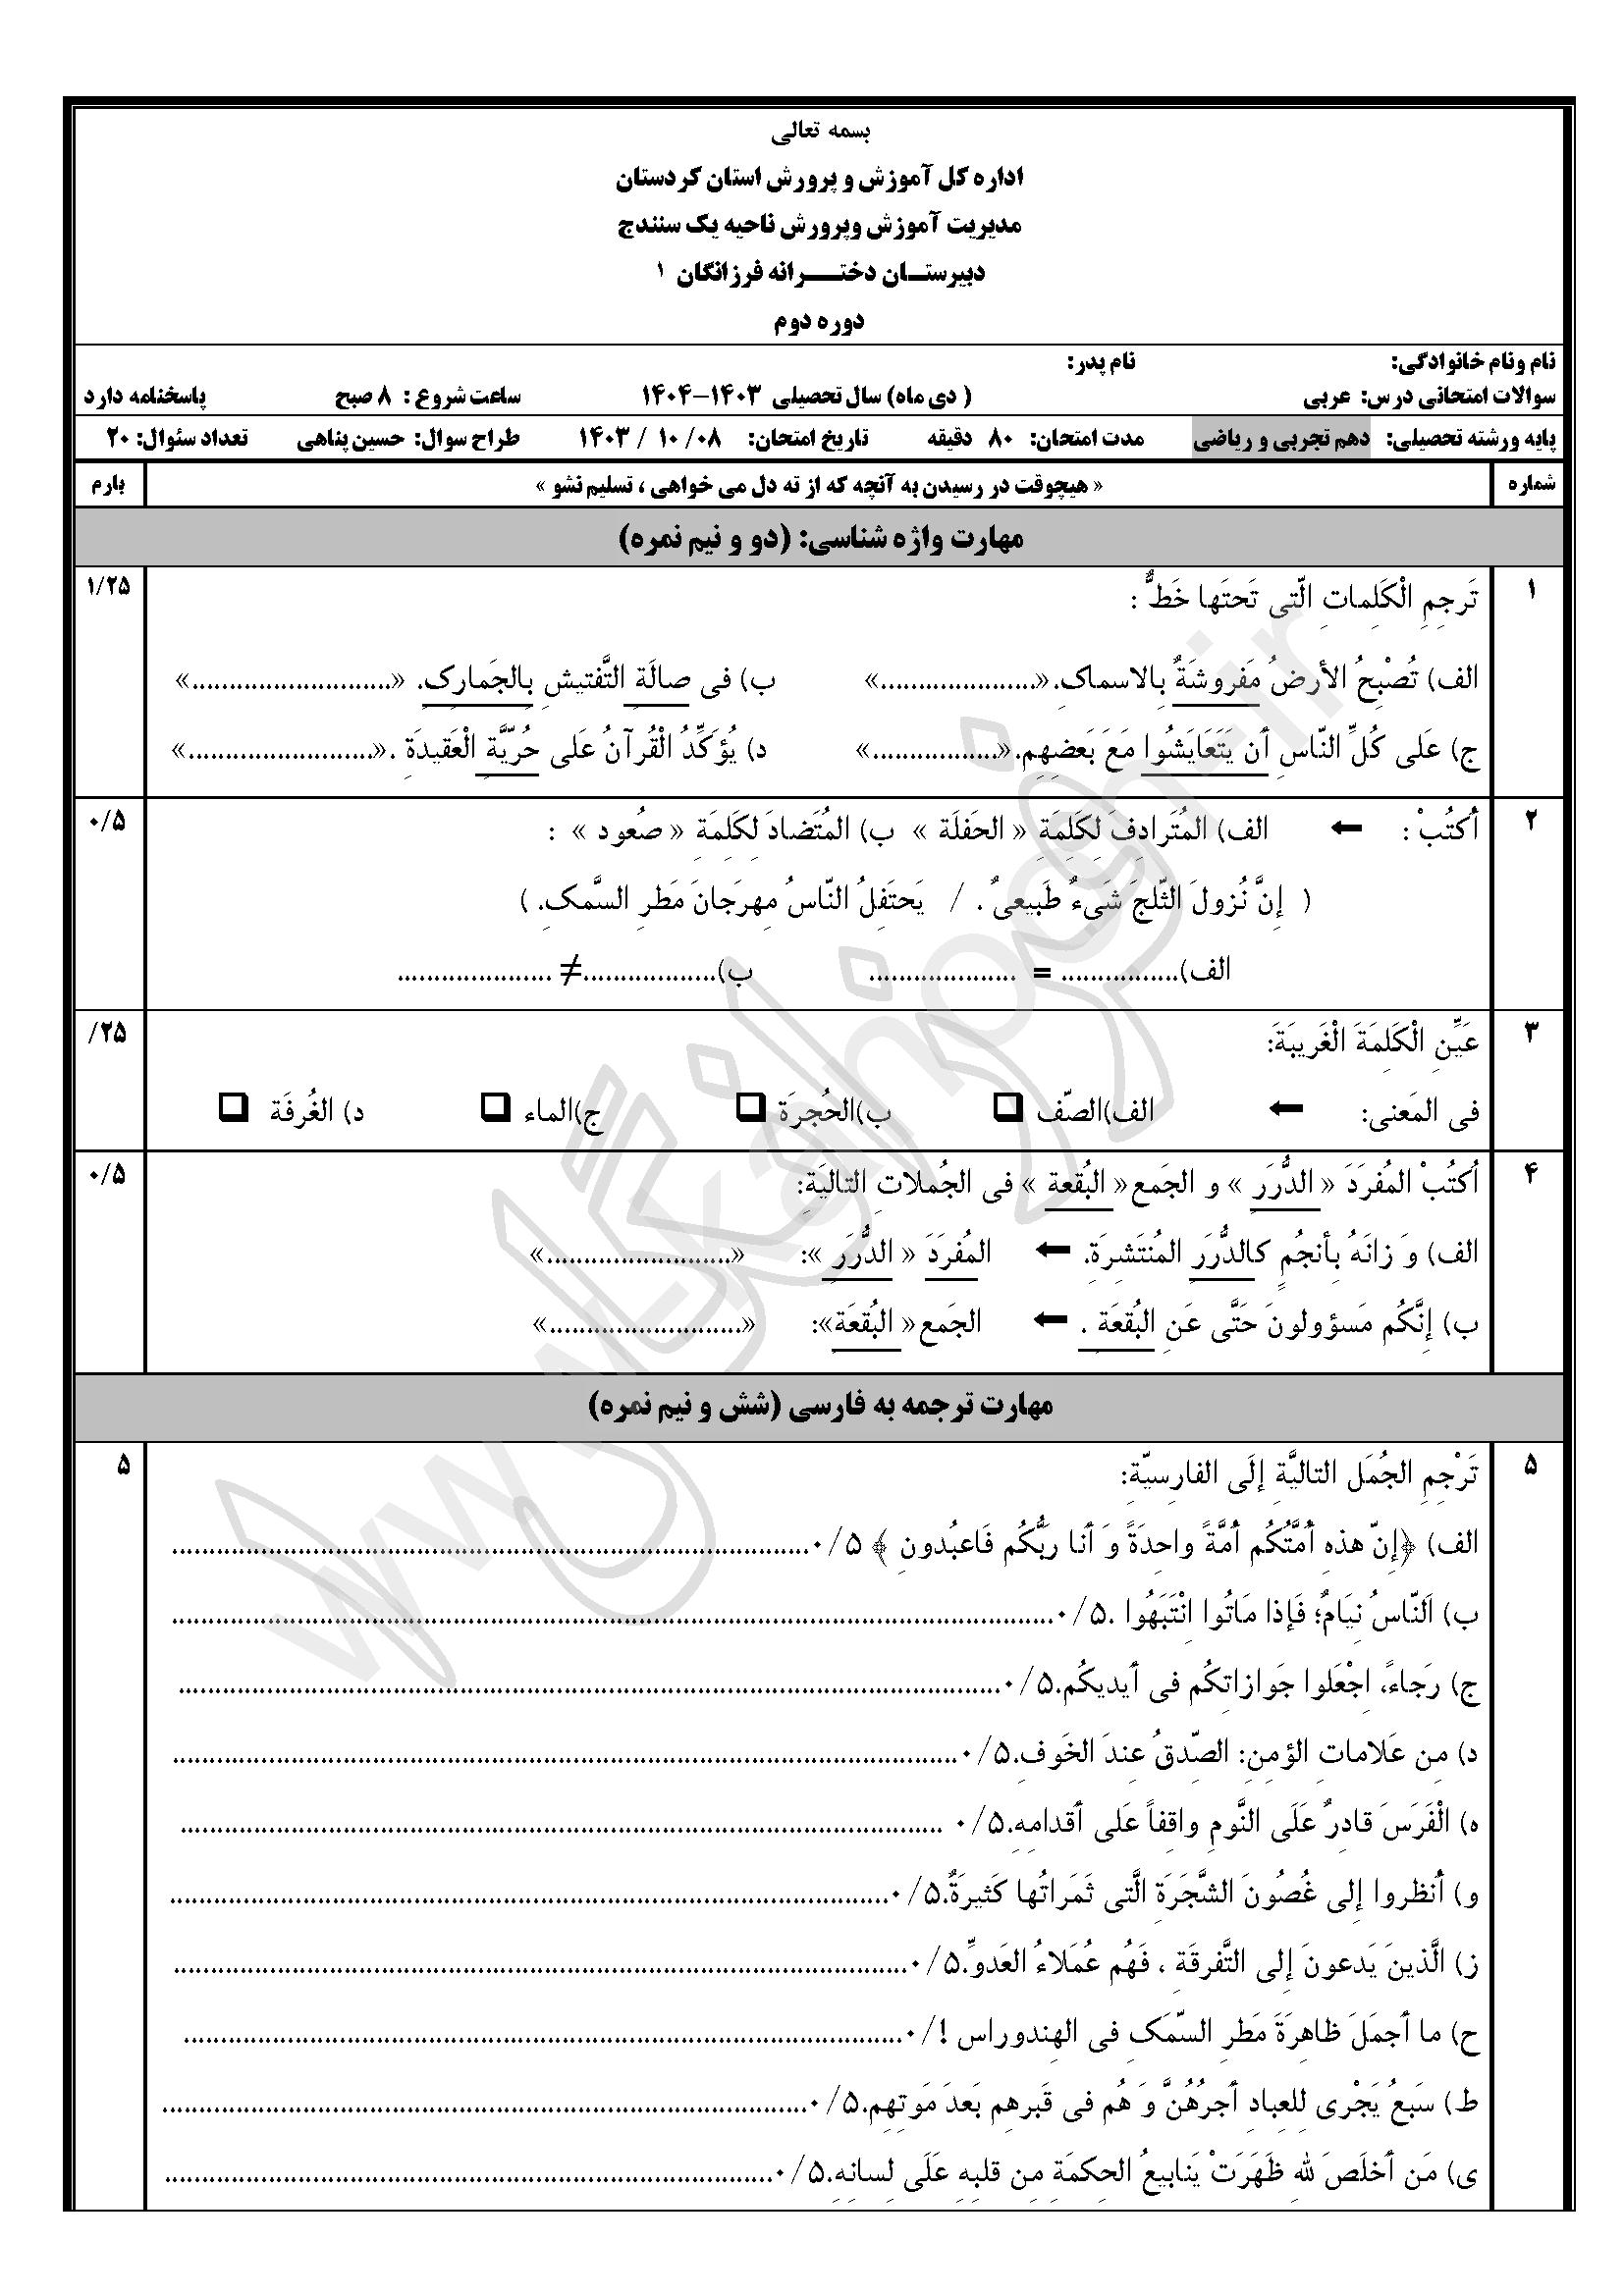 بسمه تعالی
اداره کل آموزش و پرورش استان کردستان
مدیریت آموزش وپرورش ناحیه یک سنندج
دبیرستــان دختــــرانه فرزانگان ۱
دوره دوم
نام ونام خانوادگی: نام پدر:
سوالات امتحانی درس: عربی ( دی ماه) سال تحصیلی ۱۴۰۳-۱۴۰۴ ساعت شروع : ۸ صبح پاسخنامه دارد
پایه ورشته تحصیلی: دهم تجربی و ریاضی مدت امتحان: ۸۰ دقیقه تاریخ امتحان: ۰۸/ ۱۰ / ۱۴۰۳ طراح سوال: حسین پناهی تعداد سئوال: ۲۰
شماره « هیچوقت در رسیدن به آنچه که از ته دل می خواهی ، تسلیم نشو » بارم
مهارت واژه شناسی: (دو و نیم نمره)
۱ تَرجِمِ الْکَلِماتِ الّتی تَحتَها خَطٌّ : ۱/۲۵
الف) تُصْبِحُ الأرضُ مَفروشَةٌ بِالاسماکِ.«.....................» ب) فی صالَةِ التَّفتیشِ بِالجَمارِکِ. «...........................»
ج) عَلی کُلِّ النّاسِ أن یَتَعَایَشُوا مَعَ بَعضِهِم.«.................» د) یُؤَکِّدُ الْقُرآنُ عَلی حُرّیَّةِ الْعَقیدَةِ .«.........................»
۲ أکتُبْ : ← الف) المُتَرادِفَ لِکَلِمَةِ « الحَفلَة » ب) المُتَضادَ لِکَلِمَةِ « صُعود » : ۰/۵
( إنَّ نُزولَ الثّلجَ شَیءٌ طَبیعیٌ . / یَحتَفِلُ النّاسُ مِهرَجانَ مَطرِ السَّمکِ. )
الف)................ = .................... ب)..................≠ .....................
۳ عَیِّنِ الْکَلِمَةَ الْغَریبَةَ: /۲۵
فی المَعنی: ← الف)الصّف ❑ ب)الحُجرَة ❑ ج)الماء ❑ د) الغُرفَة ❑
۴ أکتُبْ المُفرَدَ « الدُّرَرَ » و الجَمع« البُقعة » فی الجُملاتِ التالیَةِ: ۰/۵
الف) وَ زانَهُ بِأنجُمٍ کالدُّرَرِ المُنتَشِرَةِ. ← المُفرَدَ « الدُّرَرَ »: «.........................»
ب) إنَّکُم مَسؤولونَ حَتَّی عَنِ البُقعَةِ . ← الجَمع« البُقعَة»: «..........................»
مهارت ترجمه به فارسی (شش و نیم نمره)
۵ تَرْجِمِ الجُمَل التالیَّةِ إلَی الفارِسیّةِ: ۵
الف) ﴿إنّ هذهِ أمَّتُکُم أمَّةً واحِدَةً وَ أنا رَبُّکُم فَاعبُدونِ ﴾ ۰/۵......................................................................
ب) اَلنّاسُ نِیَامٌ؛ فَإذا مَاتُوا اِنْتَبَهُوا .۰/۵......................................................................
ج) رَجاءً، اِجْعَلوا جَوازاتِکُم فی أیدیکُم.۰/۵......................................................................
د) مِن عَلاماتِ الؤمِنِ: الصِّدقُ عِندَ الخَوفِ.۰/۵......................................................................
ه) الْفَرَسَ قادِرٌ عَلَی النَّومِ واقِفاً عَلی أقدامِهِ.۰/۵ ......................................................................
و) اُنظروا إلی غُصُونَ الشَّجَرَةِ الَّتی ثَمَراتُها کَثیرَةٌ.۰/۵......................................................................
ز) الَّذینَ یَدعونَ إلی التَّفرقَةِ ، فَهُم عُمَلاءُ العَدوِّ.۰/۵......................................................................
ح) ما أجمَلَ ظاهِرَةَ مَطرِ السّمَکِ فی الهِندوراس !/۰......................................................................
ط) سَبعُ یَجْری لِلعِبادِ أجرُهُنَّ وَ هُم فی قَبرِهِم بَعدَ مَوتِهِم.۰/۵......................................................................
ی) مَن أخلَصَ للهِ ظَهَرَتْ یَنابیعُ الحِکمَةِ مِن قلبِهِ عَلَی لِسانِهِ.۰/۵......................................................................